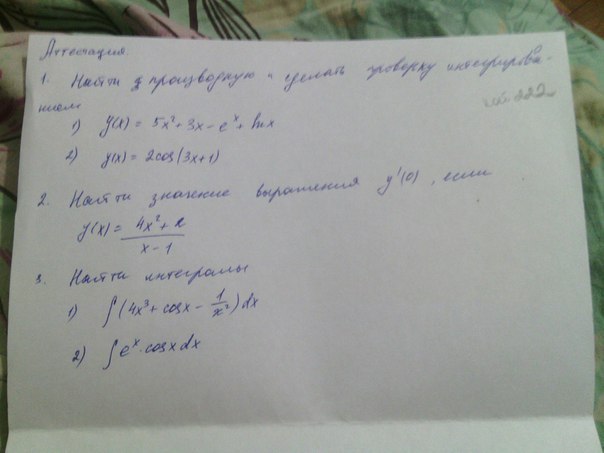 Аттестация.
1. Найти производную и сделать проверку интегрирова-
нием
каб. 222
1) y(x) = 5x² + 3x - eˣ + lnx
2) y(x) = 2cos(3x+1)
2. Найти значение выражения y'(0), если
y(x) = (4x² + 2)/(x - 1)
3. Найти интегралы
1) ∫(4x³ + cosx - 1/x²)dx
2) ∫eˣ·cosxdx